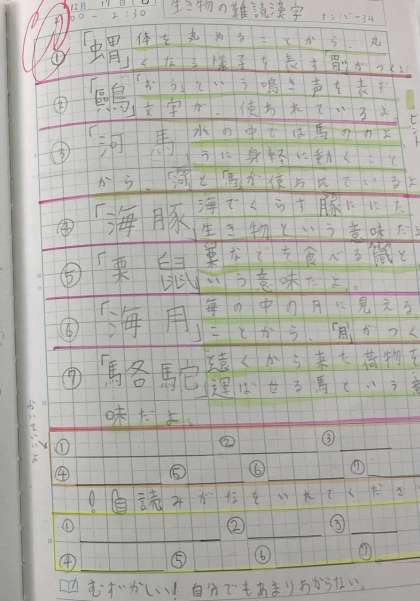 12月17日
生き物の難読漢字
00-2:30
①「蝟」体を丸めることから、丸
くなる様子を表す胃がつくよ。
②「鸚」「おう」という鳴き声を表す
文字が、使われているよ
③「河馬」水の中では馬のよ
うに身軽に動くこと
から、「河」と「馬」が使われているよ
④「海豚」海でくらす豚ににた
生き物という意味だよ
⑤「栗鼠」栗などを食べる鼠と
いう意味だよ。
⑥「海月」海の中の月に見える
ことから、「月」がつく
⑦「駱駝」遠くから来た荷物を
運ばせる馬という意
味だよ。
① ② ③
④ ⑤ ⑥ ⑦
! 自 読みがなをいれてくださ
① ② ③
④ ⑤ ⑥ ⑦
むずかしい!自分でもあまりわからない。